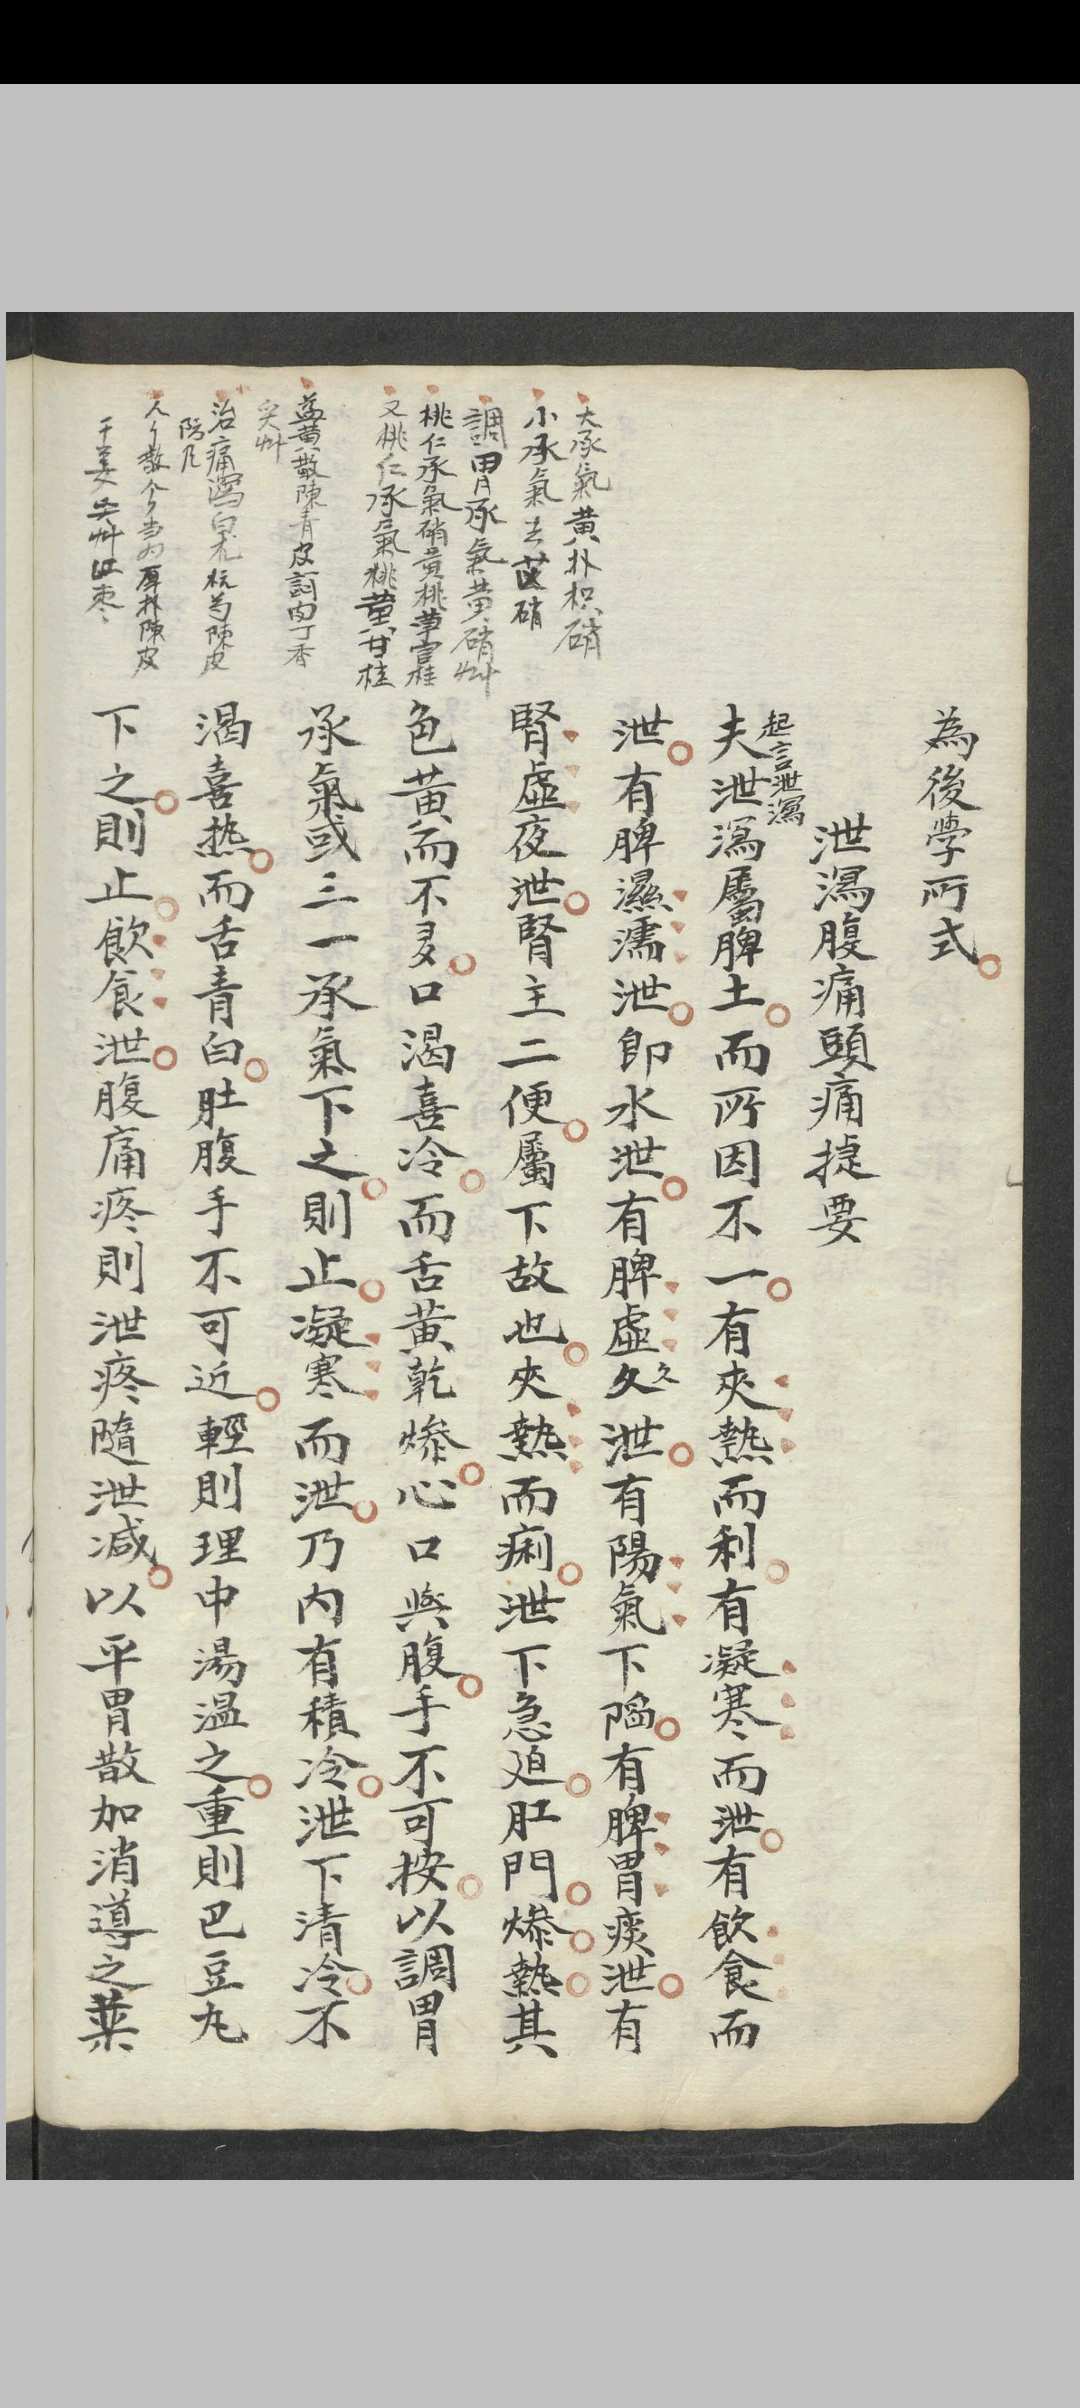 大承氣黄朴枳硝
小承氣去芒硝
調胃承氣黄硝艸
桃仁承氣硝黄桃草官桂
又桃仁承氣桃黄甘桂
益黄散陳青皮訶肉丁香
炙艸
治痛瀉白朮杭芍陳皮
防凡
厚朴陳皮
干姜炙艸红枣
為後學所式
泄瀉腹痛頭痛提要
起言泄瀉
夫泄瀉屬脾土而所因不一有夾熱而利有凝寒而泄有飲食而
泄有脾濕濡泄即水泄有脾虛久久泄有陽氣下陷有脾胃痰泄有
腎虛夜泄腎主二便屬下故也夾熱而痢泄下急迫肛門燥熱其
色黄而不多口渴喜冷而舌黄乾燥心口與腹手不可按以調胃
承氣或三一承氣下之則止凝寒而泄乃内有積冷泄下清冷不
渴喜热而舌青白肚腹手不可近輕則理中湯温之重則巴豆丸
下之則止飲食泄腹痛疼則泄疼隨泄减以平胃散加消導之藥